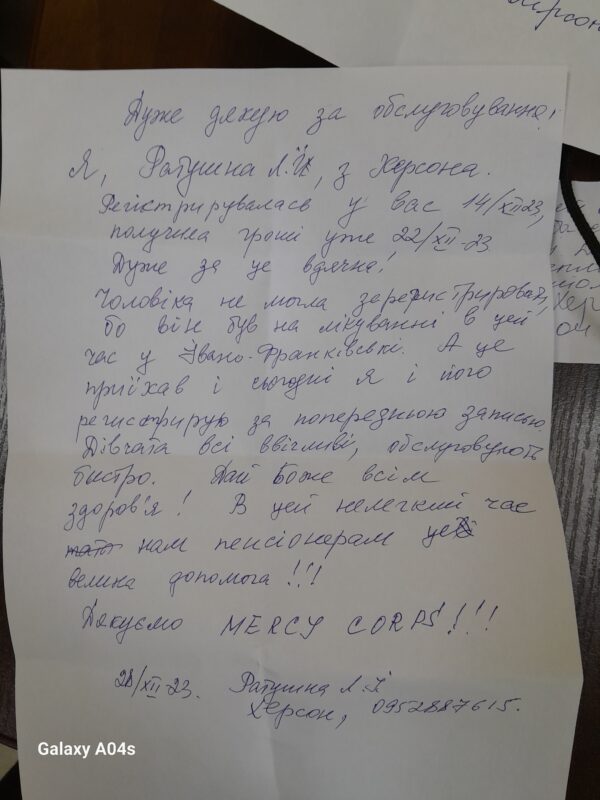 Дуже дякую за обслуговування!
Я, Ратушна Л.Й, з Херсона.
Регістрирувалась у вас 14/XII23,
получила гроші уже 22/XII-23
Дуже за це вдячна!
Чоловіка не могла зарегистрировать,
бо він був на лікуванні в цей
час у Івано-Франківські. А це
приїхав і сьогодні я і його
регистрирую за попередньою записью
Дівчата всі ввічливі, обслуговують
бистро. Дай Боже всім
здоров'я! В цей нелегкий час
нам пенсіонерам це
велика допомога!!!
Дякуємо MERCY CORPS!!!
28/XII-23. Ратушна Л.Й
Херсон, 0952887615.
Galaxy A04s